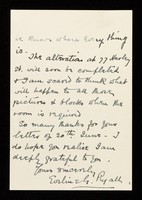 where every thing
is. The alterations at 77 Harley
St. will soon be completed
& I am scared to think what
will happen to all these
sections & blocks when the
room is required
So many thanks for your
letter of 20th June. I
do hope you realise I am
deeply grateful to you.
Yours sincerely